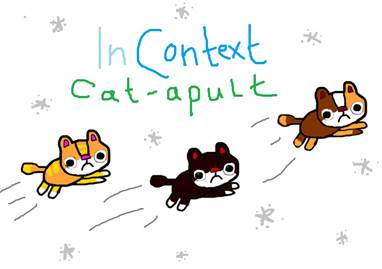 In Context
Cat-apult